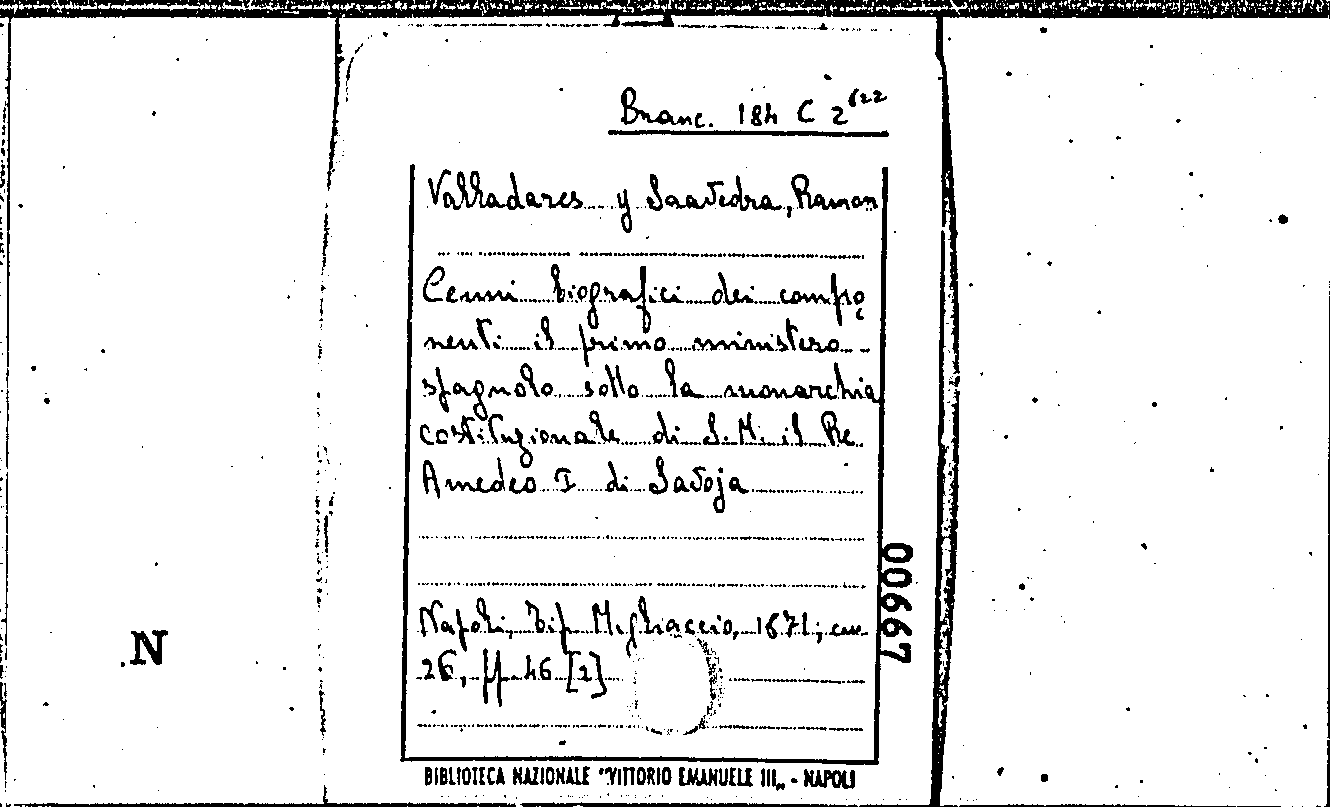 Branc. 184 C 2⁶²²
Valladares y Saavedra, Ramon
Cenni biografici dei compo
nenti il primo ministero
spagnolo sotto la monarchia
costituzionale di S. M. il Re
Amedeo I di Savoja
Napoli, Tip. Migliaccio, 1871; cm.
26, pp. 46 [2]
00667
N
BIBLIOTECA NAZIONALE "VITTORIO EMANUELE III„ - NAPOLI